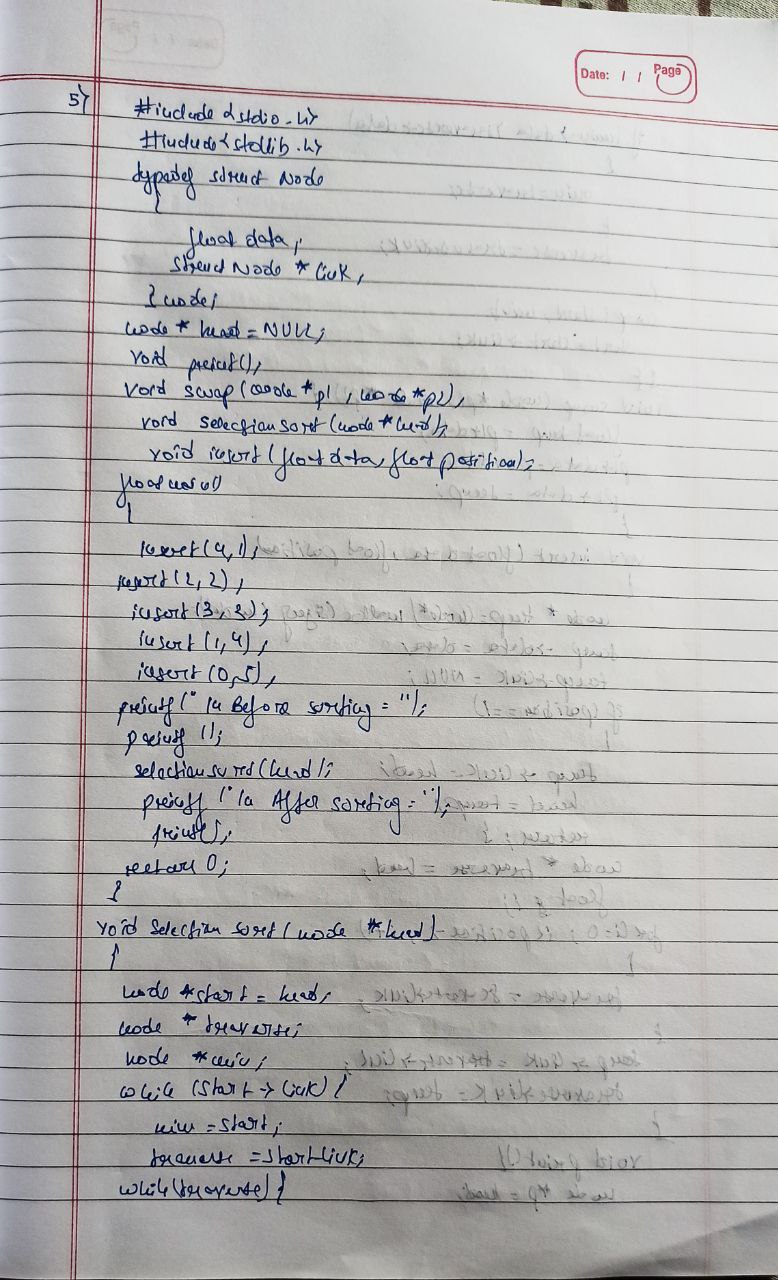 Date: / / Page
5)
#include <stdio.h>
#include <stdlib.h>
typedef struct Node
{
float data;
struct Node * link;
} node;
node * head = NULL;
void print();
void swap (node *p1, node *p2);
void selectionsort (node *head);
void insert (float data, float position);
float main()
{
insert (4,1);
insert (2,2);
insert (3,3);
insert (1,4);
insert (0,5);
printf (" \n Before sorting = ");
print ();
selectionsort (head);
printf (" \n After sorting = ");
print();
return 0;
}
void selection sort (node *head)
{
node *start = head;
node * traverse;
node *min;
while (start -> link) {
min = start;
traverse = start link;
while (traverse) {